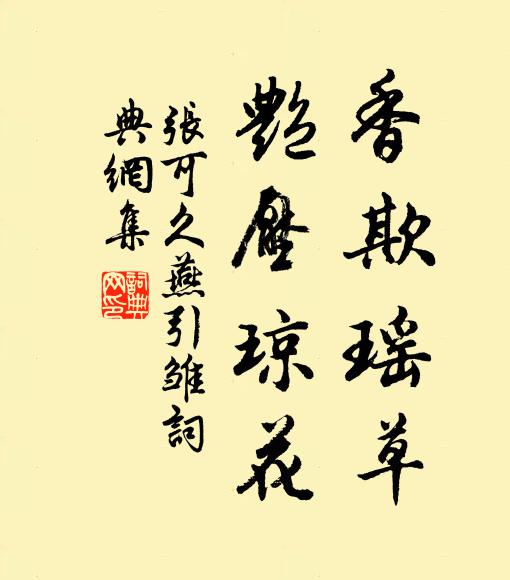 香欺瑶草
艷壓琼花
張可久燕引雏詞
典網集
詞典
网印